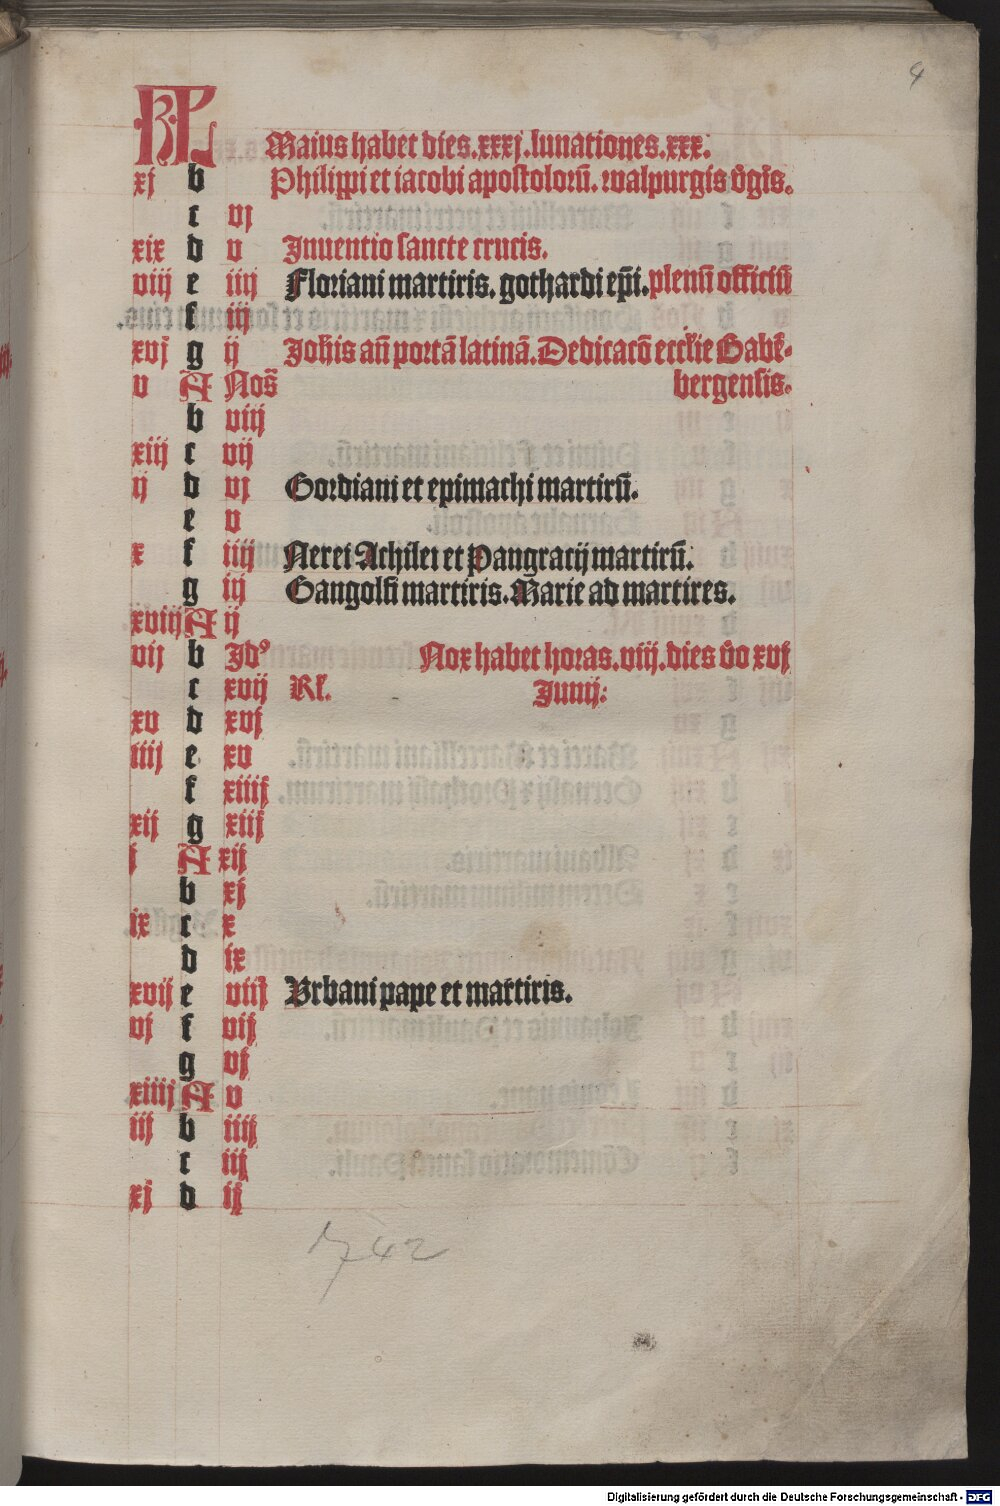 4
KL
Maius habet dies.xxxj.lunationes.xxx.
xj b Philippi et iacobi apostolorũ. walpurgis v̄gĩs.
c vj
xix d v Inuentio sancte crucis.
viij e iiij Floriani martiris. gothardi ep̄i. plenũ officiũ
f iij
xvj g ij Joh̄is añ portā latinā. Dedicacō eccl̄ie Babē-
v A Noñ bergensis.
b viij
xiij c vij
ij d vj Gordiani et epimachi martirũ.
e v
x f iiij Nerei Achilei et Pangracij martirũ.
g iij Gangolfi martiris. Marie ad martires.
xviij A ij
vij b Idꝰ Nox habet horas.viij.dies v̄o xvj
c xvij Kł. Junij:
xv d xvj
iiij e xv
f xiiij
xij g xiij
j A xij
b xj
ix c x
d ix
xvij e viij Vrbani pape et martiris.
vj f vij
g vj
xiiij A v
iij b iiij
c iij
xj d ij
1742
Digitalisierung gefördert durch die Deutsche Forschungsgemeinschaft - DFG